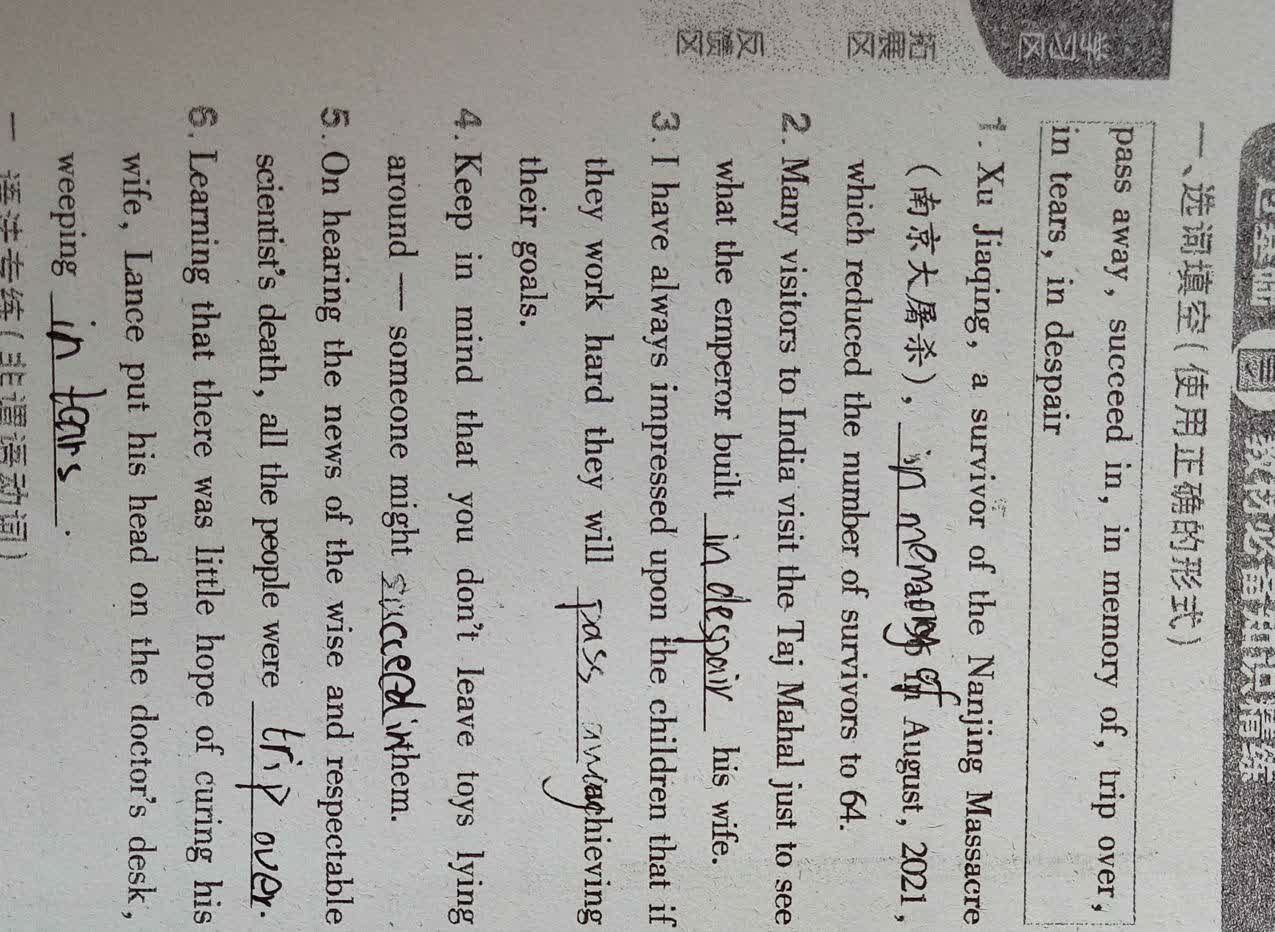 教材必备知识精练
一、选词填空(使用正确的形式)
pass away, succeed in, in memory of, trip over,
in tears, in despair
1. Xu Jiaqing, a survivor of the Nanjing Massacre
(南京大屠杀), in memory of in August, 2021,
which reduced the number of survivors to 64.
2. Many visitors to India visit the Taj Mahal just to see
what the emperor built in despair his wife.
3. I have always impressed upon the children that if
they work hard they will pass away achieving
their goals.
4. Keep in mind that you don't leave toys lying
around — someone might succeed in them.
5. On hearing the news of the wise and respectable
scientist's death, all the people were trip over.
6. Learning that there was little hope of curing his
wife, Lance put his head on the doctor's desk,
weeping in tears.
语法专练(非谓语动词)
学习区
拓展区
反馈区